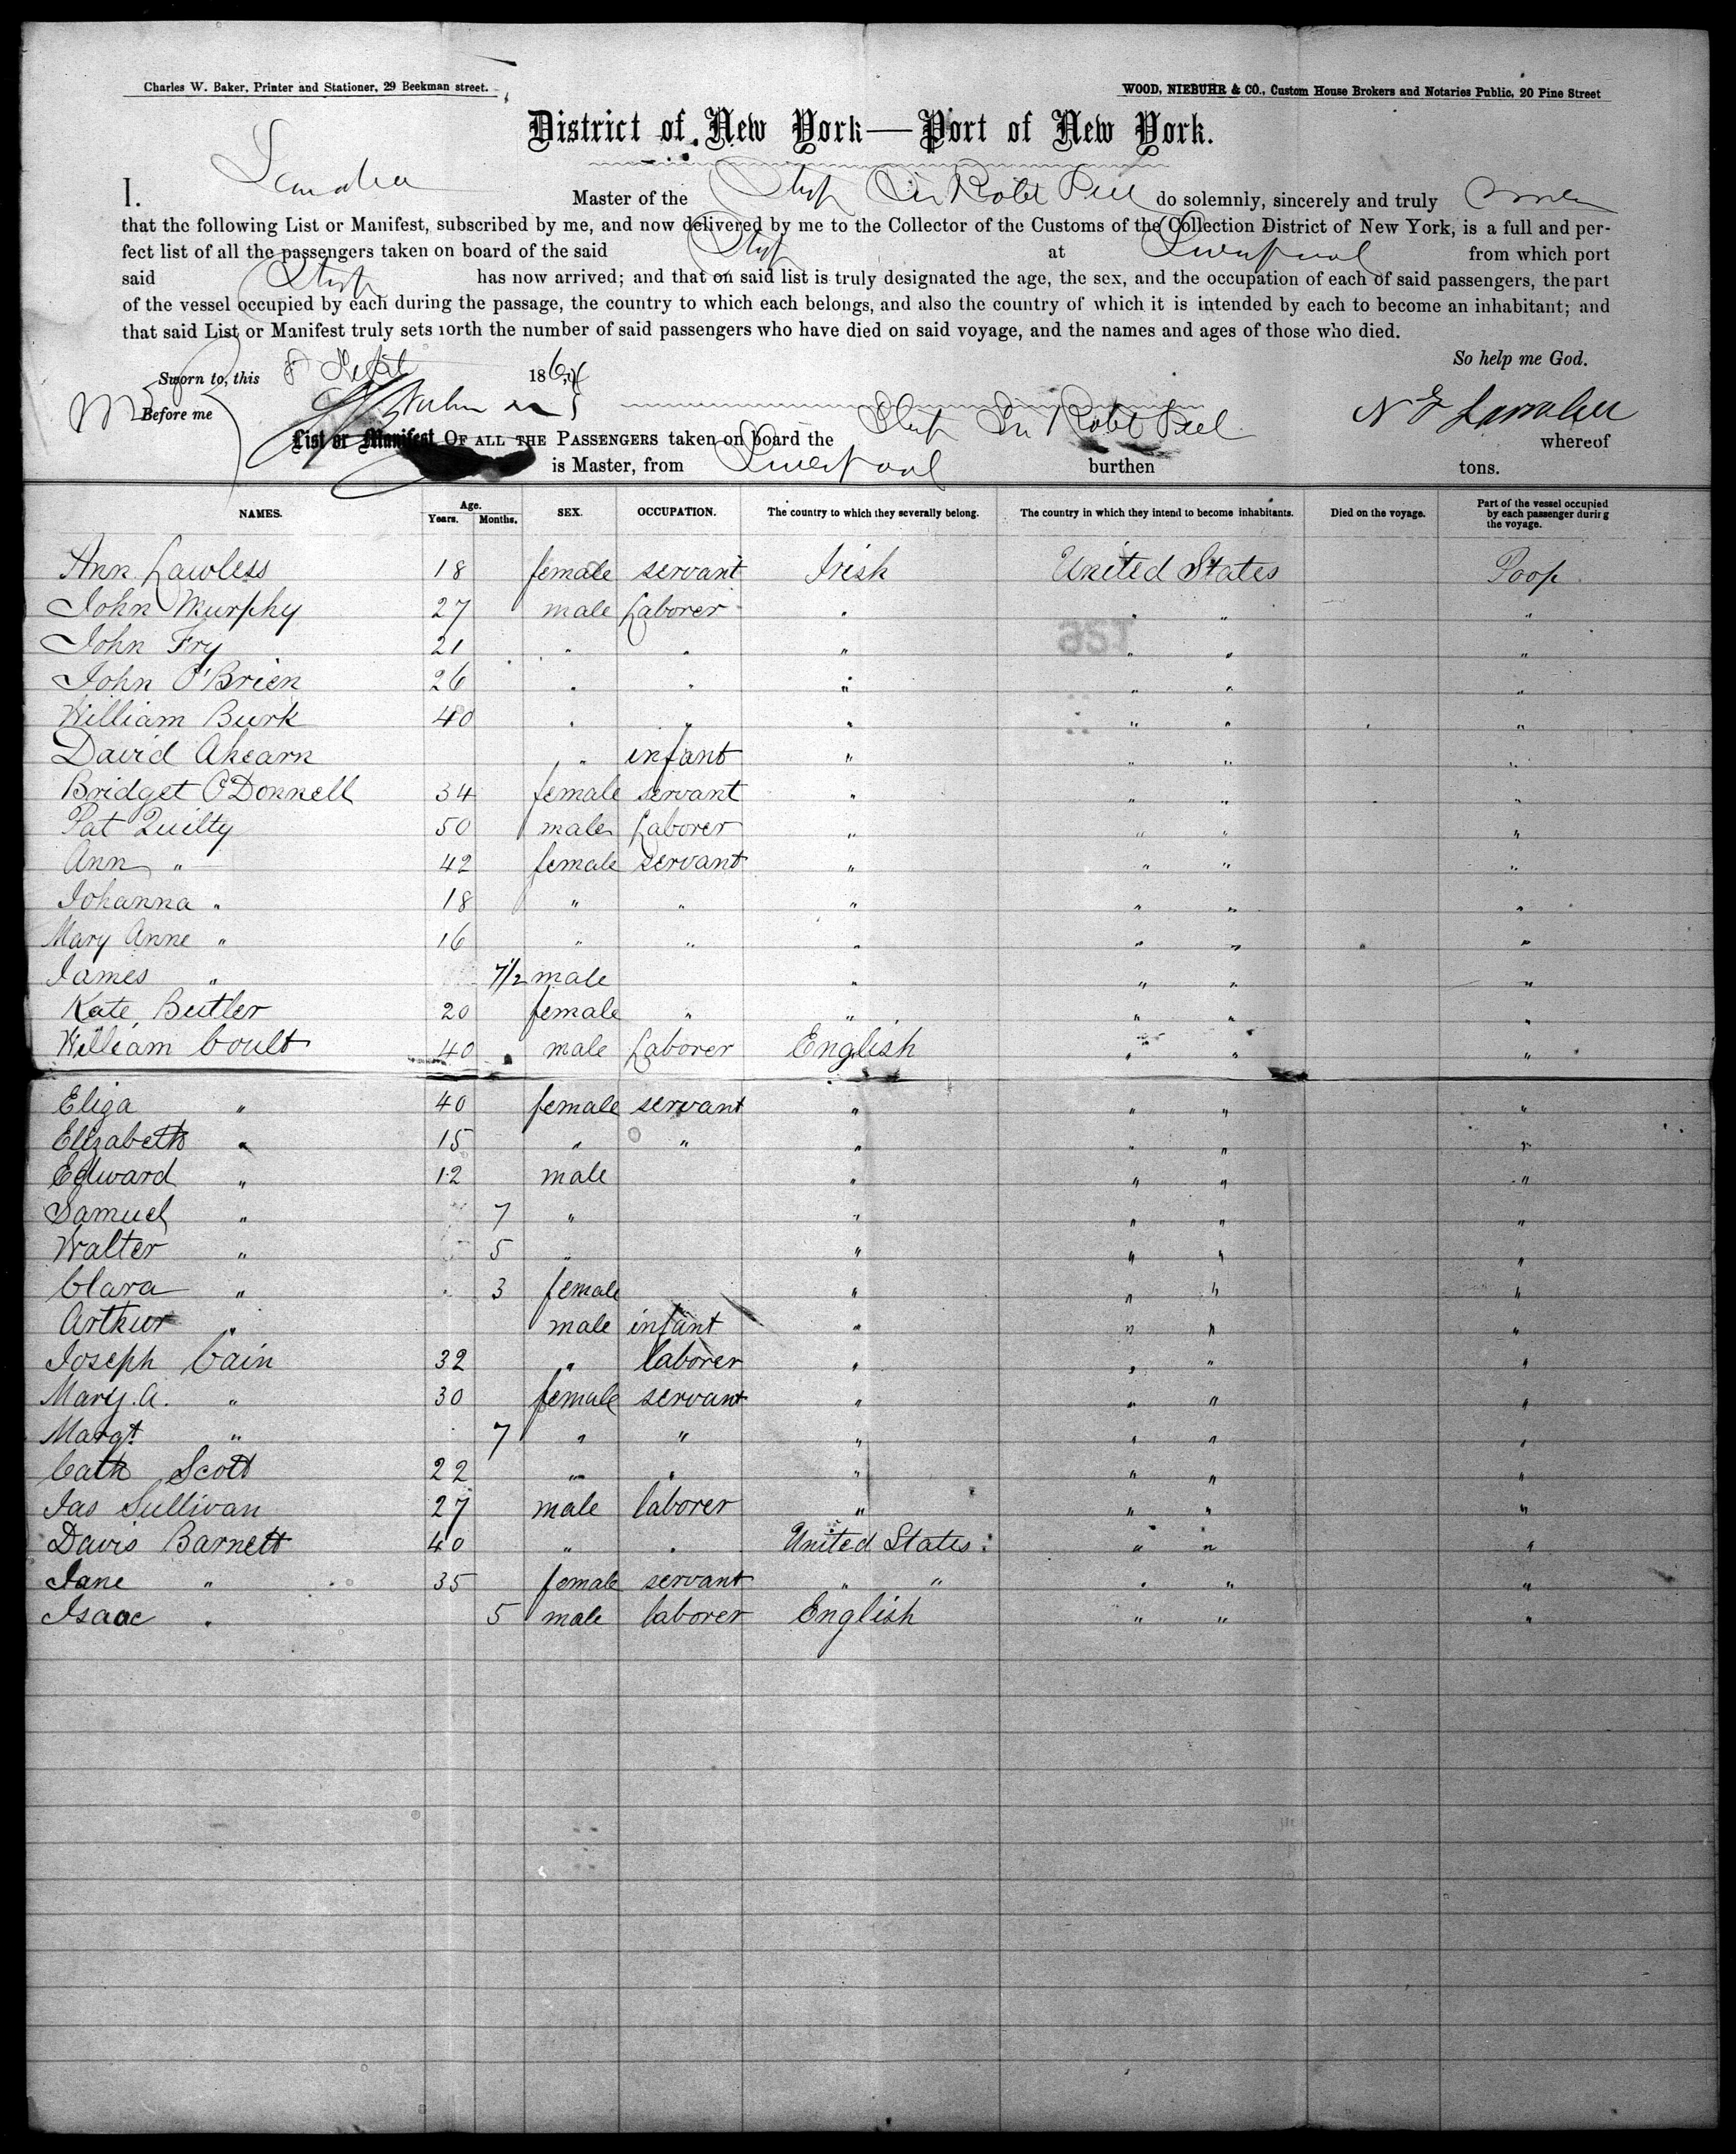 Charles W. Baker, Printer and Stationer, 29 Beekman street.
WOOD, NIEBUHR & CO., Custom House Brokers and Notaries Public, 20 Pine Street
District of New York—Port of New York.
I. Master of the Ship Sir Robt Peel do solemnly, sincerely and truly
that the following List or Manifest, subscribed by me, and now delivered by me to the Collector of the Customs of the Collection District of New York, is a full and per-
fect list of all the passengers taken on board of the said Ship at Liverpool from which port
said Ship has now arrived; and that on said list is truly designated the age, the sex, and the occupation of each of said passengers, the part
of the vessel occupied by each during the passage, the country to which each belongs, and also the country of which it is intended by each to become an inhabitant; and
that said List or Manifest truly sets forth the number of said passengers who have died on said voyage, and the names and ages of those who died.
So help me God.
Sworn to, this 8 Sept 186
Before me
List or Manifest OF ALL THE PASSENGERS taken on board the Ship Sir Robt Peel whereof
is Master, from Liverpool burthen tons.
NAMES. Age. Years. Months. SEX. OCCUPATION. The country to which they severally belong. The country in which they intend to become inhabitants. Died on the voyage. Part of the vessel occupied by each passenger during the voyage.
Ann Lawless 18 female servant Irish United States Poop
John Murphy 27 male Laborer " " " "
John Fry 21 " " " " " "
John O'Brien 26 " " " " " "
William Burk 40 " " " " " "
David Ahearn " infant " " " "
Bridget O'Donnell 34 female servant " " " "
Pat Quilty 50 male Laborer " " " "
Ann " 42 female servant " " " "
Johanna " 18 " " " " " "
Mary Anne " 16 " " " " " "
James " 7½ male " " " "
Kate Butler 20 female " " " " "
William Coult 40 male Laborer English " " "
Eliza " 40 female servant " " " "
Elizabeth " 15 " " " " " "
Edward " 12 male " " " "
Samuel " 7 " " " " "
Walter " 5 " " " " "
Clara " 3 female " " " "
Arthur " male infant " " " "
Joseph Cain 32 " laborer " " " "
Mary. A. " 30 female servant " " " "
Margt " 7 " " " " " "
Cath Scott 22 " " " " " "
Jas Sullivan 27 male laborer " " " "
Davis Barnett 40 " " United States " " "
Jane " 35 female servant " " " " "
Isaac " 5 male laborer English " " "